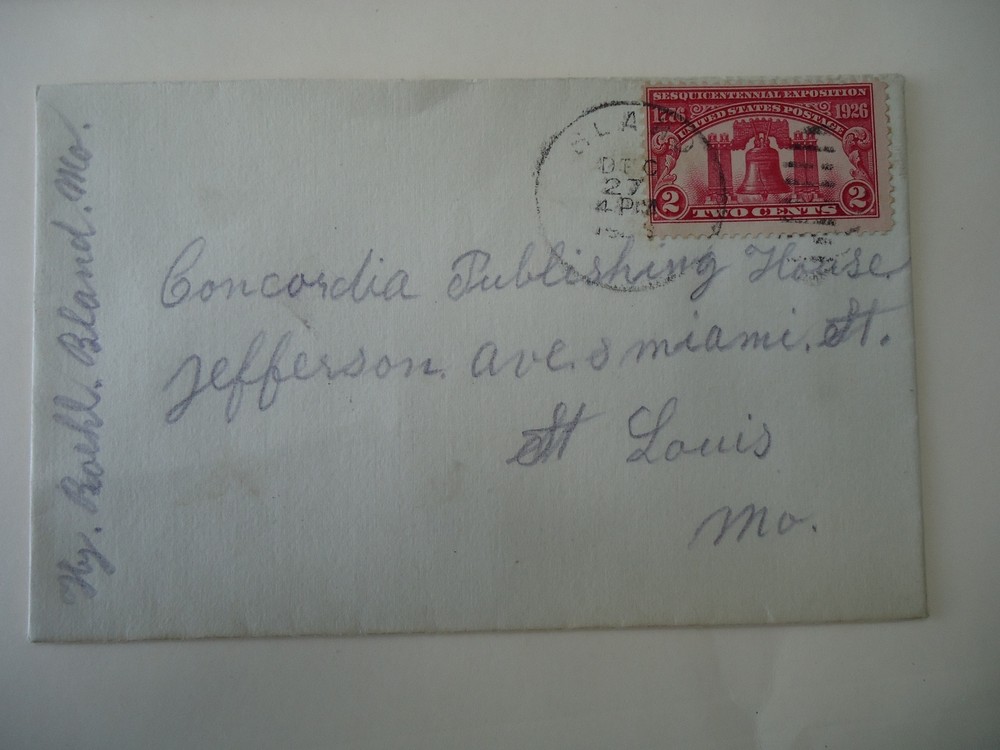 Hy. Roehl. Bland. Mo.
SESQUICENTENNIAL EXPOSITION
1776 UNITED STATES POSTAGE 1926
2 TWO CENTS 2
DEC
27
4 PM
Concordia Publishing House
Jefferson. Ave. & Miami. St.
St Louis
Mo.